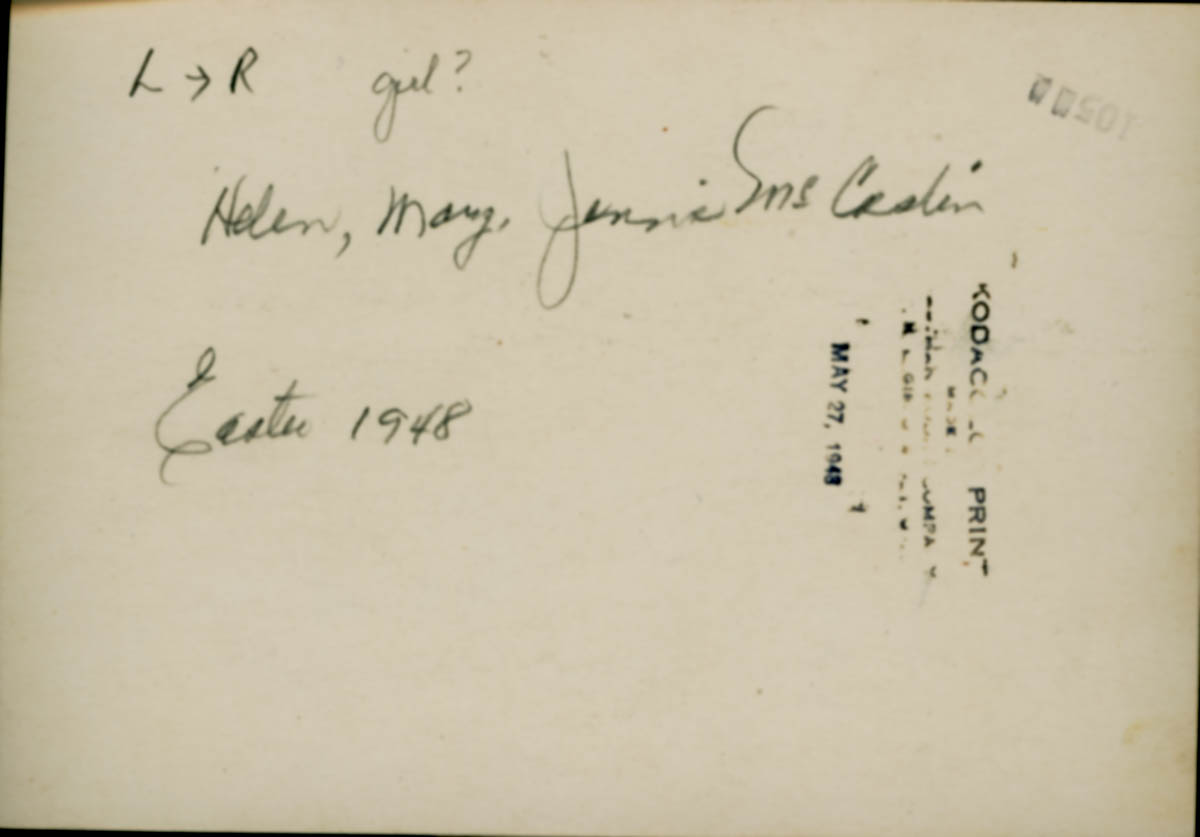 L → R girl?
Helen, Mary, Jennie McCaslin
Easter 1948
KODAC PRINT
MADE
MAY 27, 1948
105